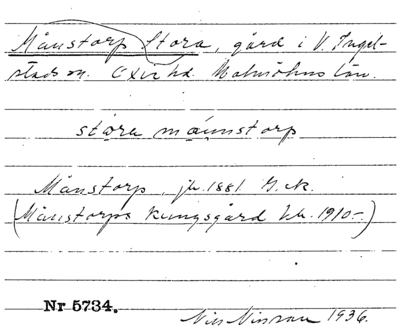 Månstorp Stora, gård i V. Ingel-
stads sn. Oxie hd. Malmöhus län.
stára mánnstorp
Månstorp, jb. 1881. G.ek.
(Månstorps kungsgård kb. 1910-)
Nr 5734.
Nils Nilsson 1936.